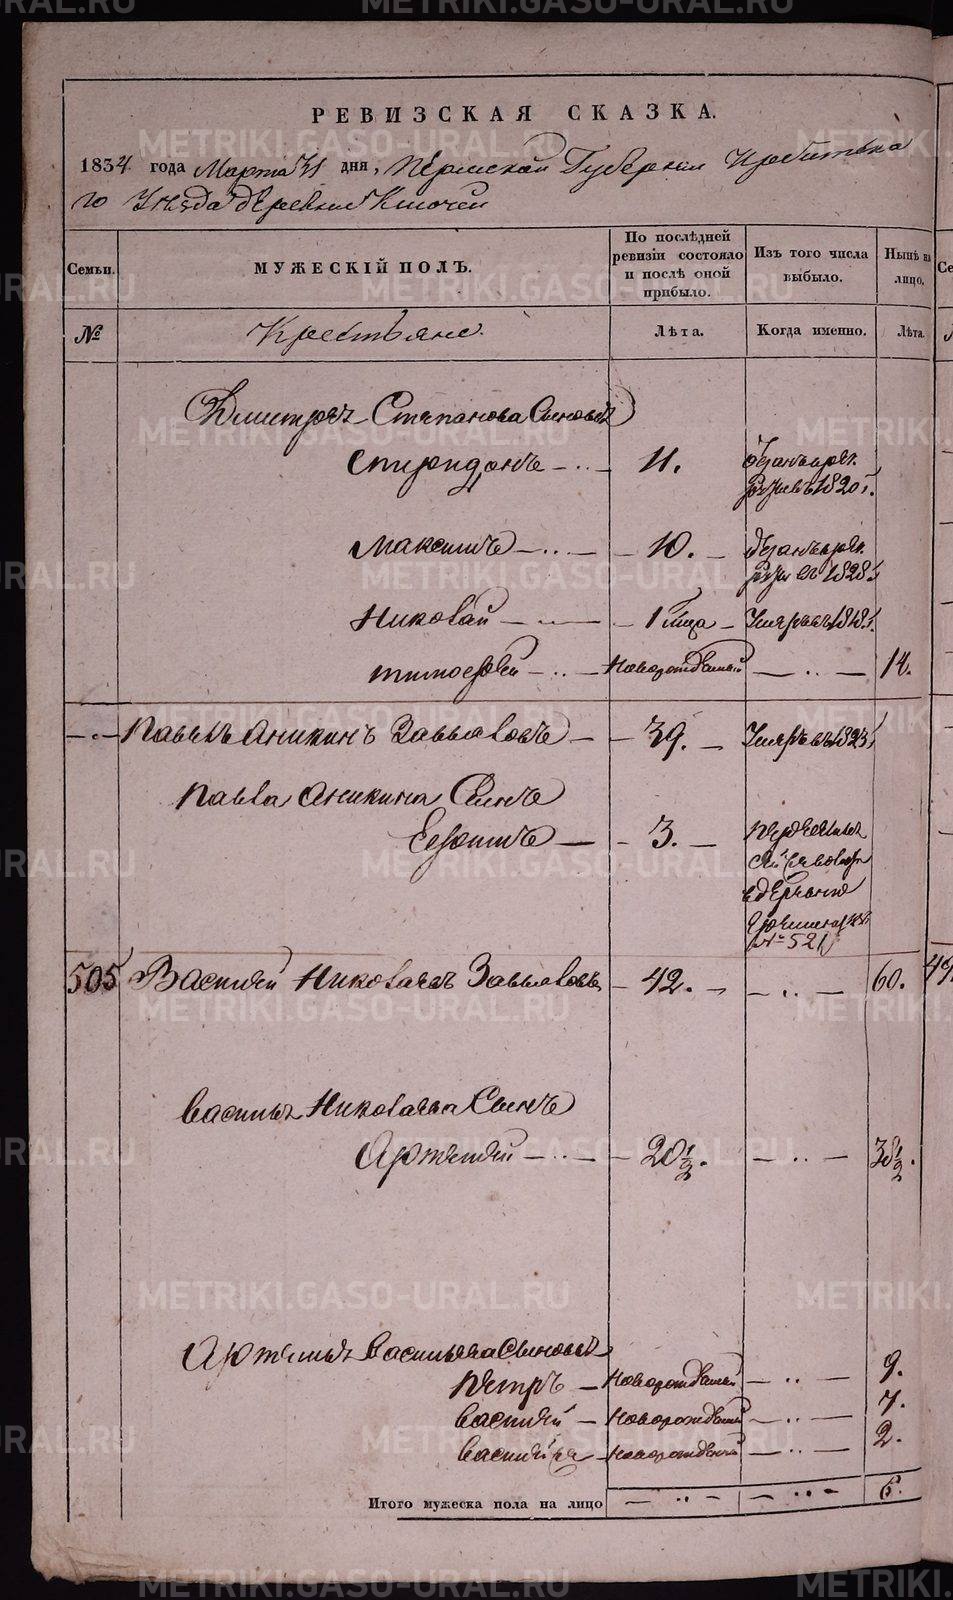 РЕВИЗСКАЯ СКАЗКА.
1834 года Марта 31 дня, Пермской Губернии Ирбитска
го Уезда деревни Ключей
Семьи. МУЖЕСКІЙ ПОЛЪ. По послѣдней ревизіи состояло и послѣ оной прибыло. Изъ того числа выбыло. Нынѣ на лицо.
№ Крестьяне Лѣта. Когда именно. Лѣта.
Дмитрея Степанова Сыновья
Спиридонъ 11. 1820 г.
Максимъ 10. 1828
Николай 1 Умеръ въ 1818
Тимофей Новорожденный 14.
Павелъ Аникинъ Завьяловъ 39. Умеръ въ 1823
Павла Аникина Сынъ
Ефимъ 3.
№ 521
505 Василий Николаевъ Завьяловъ 42. 60.
Василья Николаева Сынъ
Артемий 20 1/2. 38 1/2.
Артемья Васильева Сыновья
Петръ Новорожденный 9.
Василий Новорожденный 7.
Василий 2й Новорожденный 2.
Итого мужеска пола на лицо 6.
METRIKI.GASO-URAL.RU